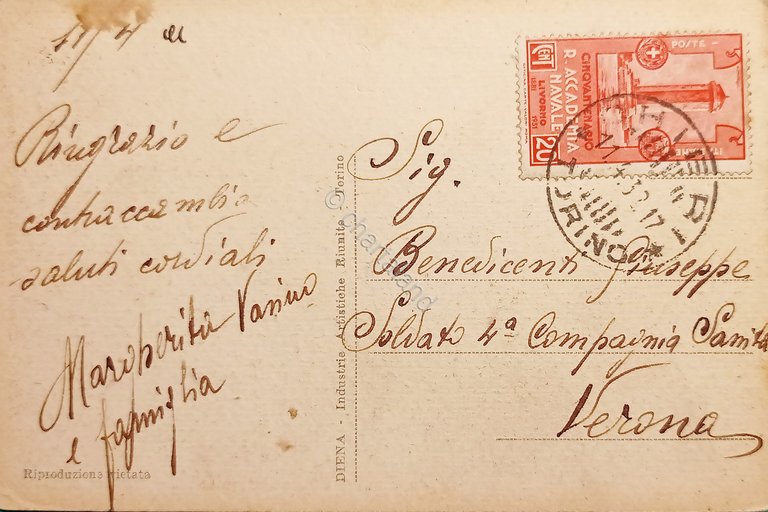 11/4
Ringrazio e
contraccambio
saluti cordiali
Margherita Vanino
e famiglia
Riproduzione vietata
DIENA - Industrie Artistiche Riunite Torino
CENT 20
CINQVANTENARIO
R. ACCADEMIA
NAVALE
LIVORNO
1881 1931
POSTE
ITALIANE
CHIERI
TORINO
Sig.
Benedicenti Giuseppe
Soldato 4ª Compagnia Sanità
Verona